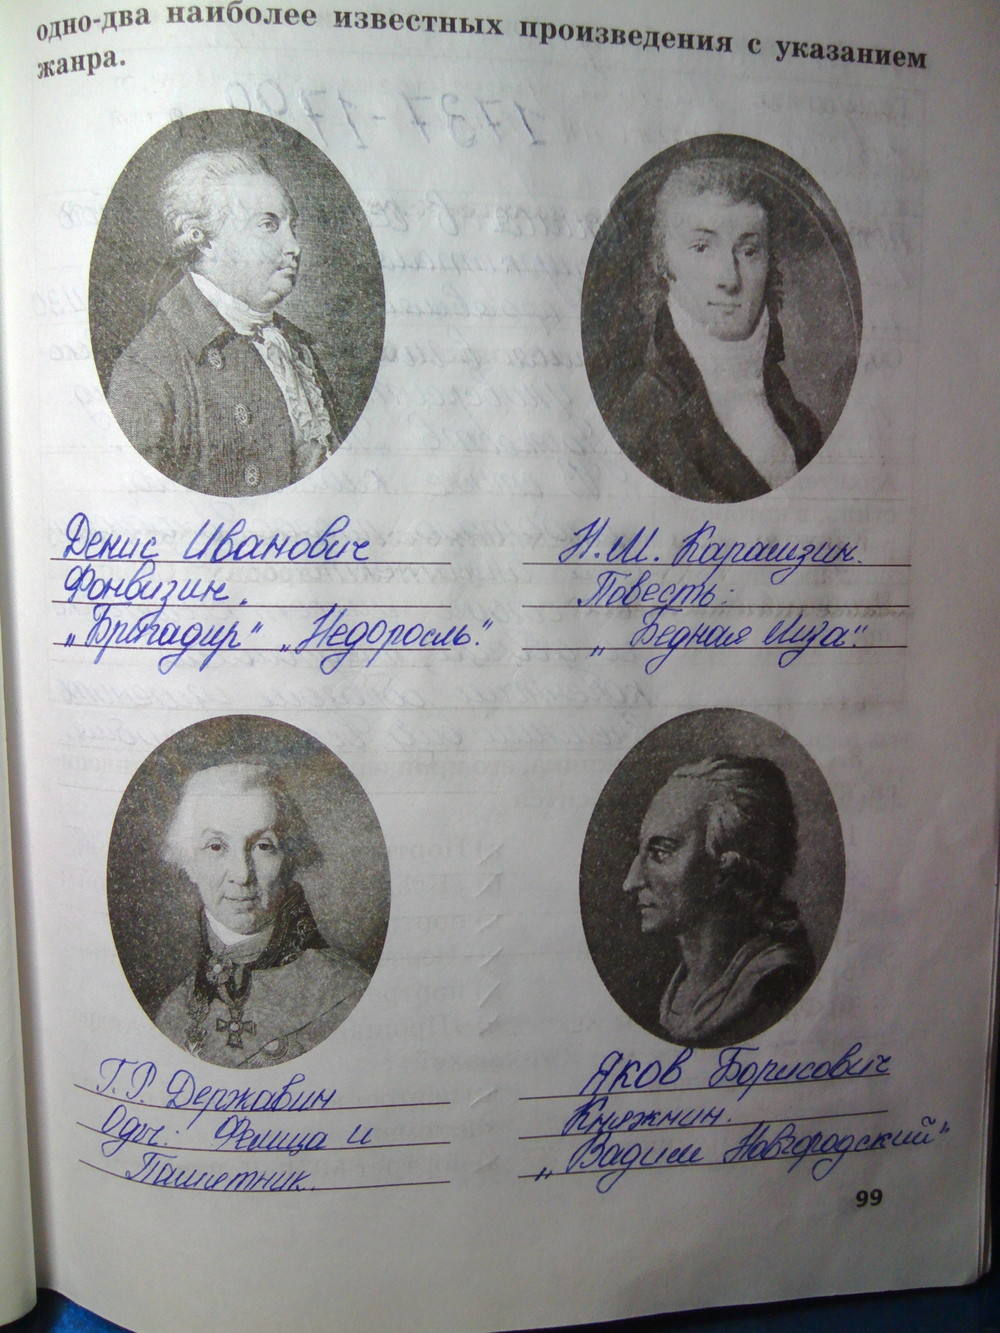 одно-два наиболее известных произведения с указанием
жанра.
Денис Иванович
Фонвизин.
„Бригадир" „Недоросль".
Н.М. Карамзин.
Повесть:
„Бедная Лиза".
Г.Р. Державин
Оды: Фелица и
Памятник.
Яков Борисович
Княжнин.
„Вадим Новгородский"
99